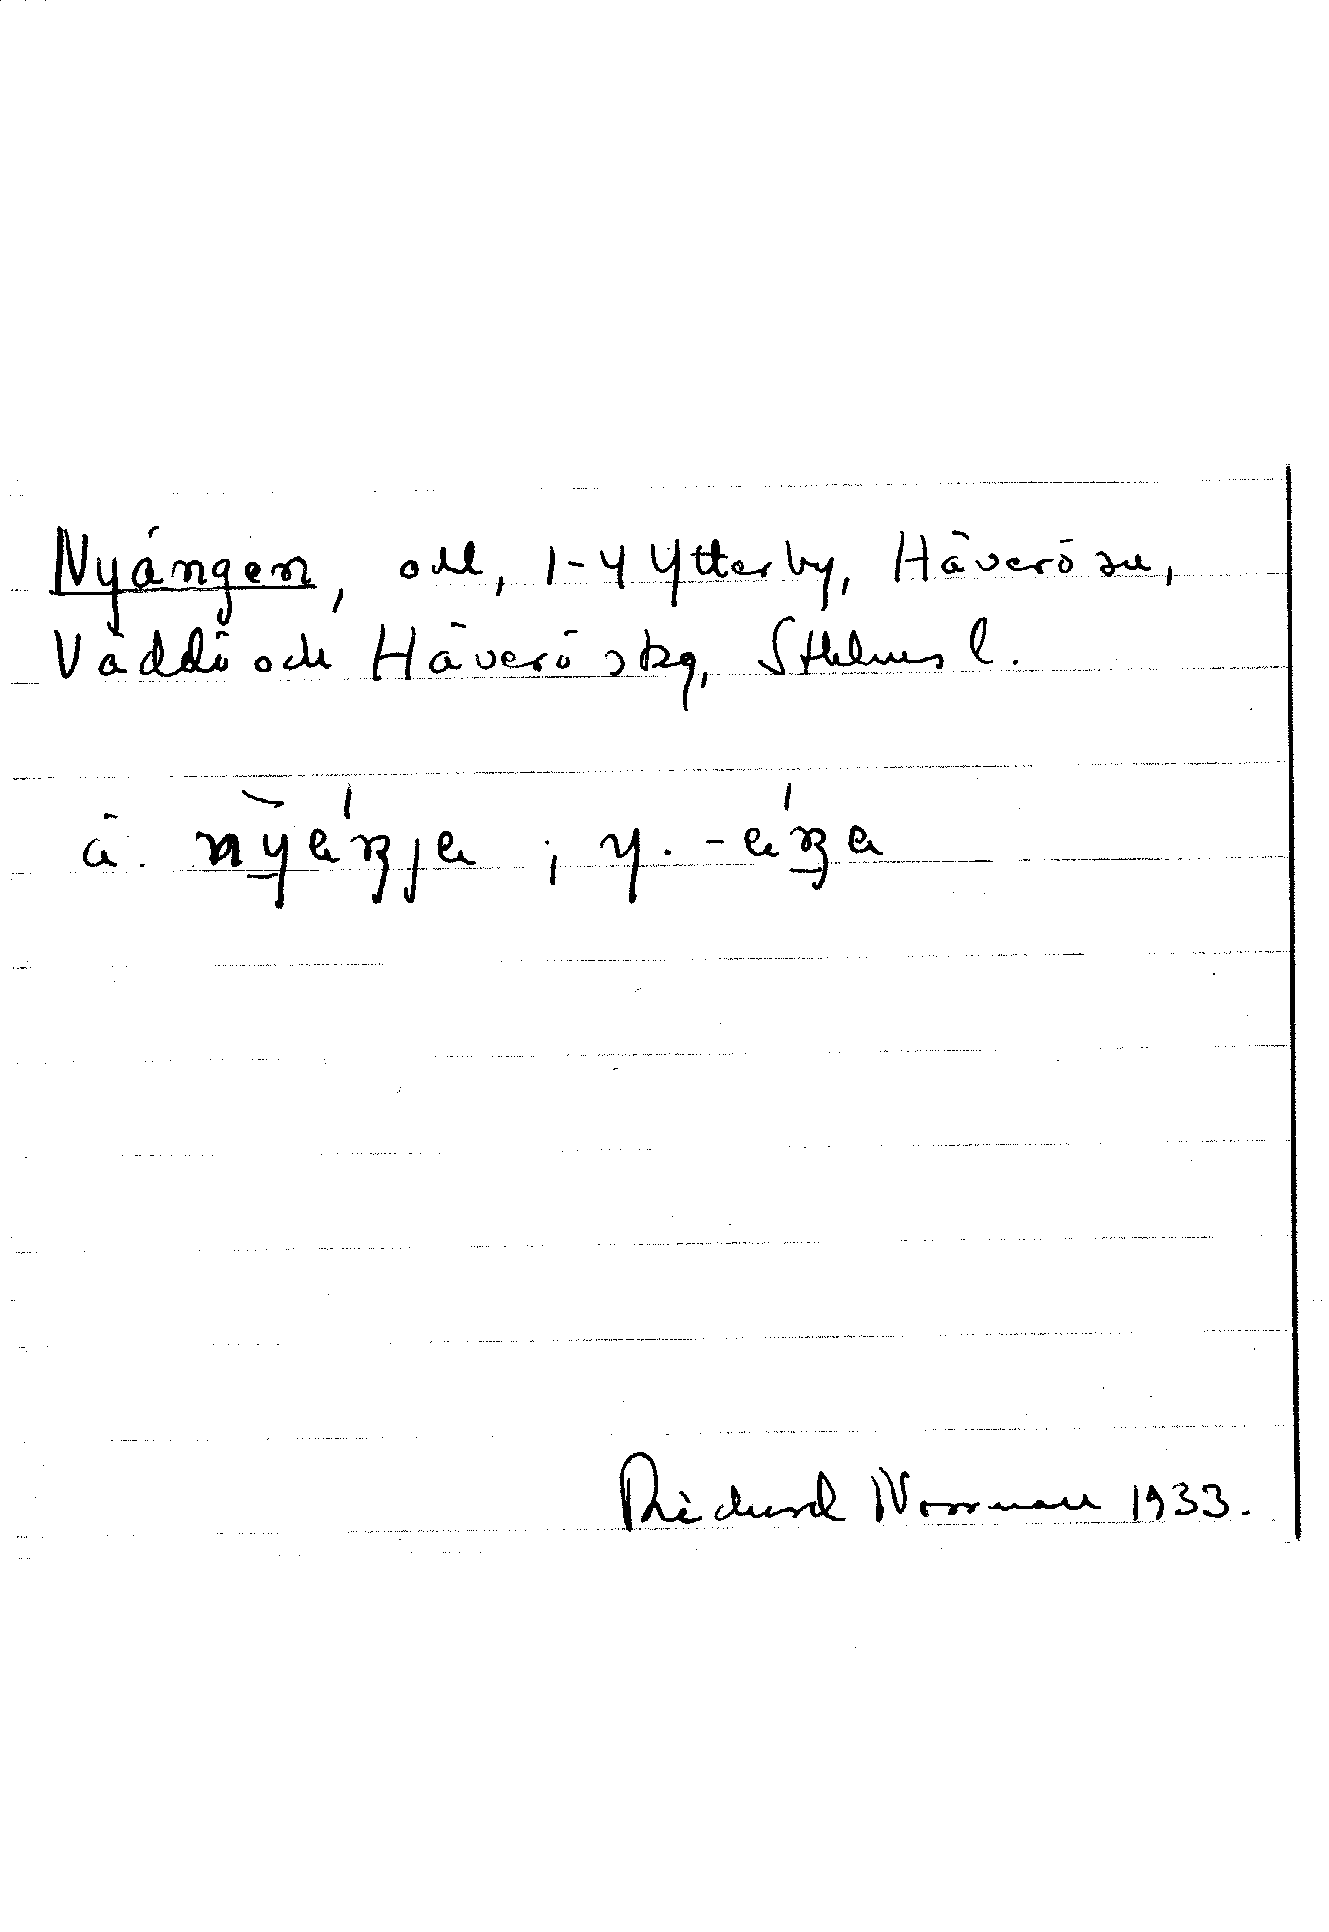 Nyängen, odl, 1-4 Ytterby, Häverö sn,
Väddö och Häverö skg, Sthlms l.
ä. ; y.
Richard Norrman 1933.